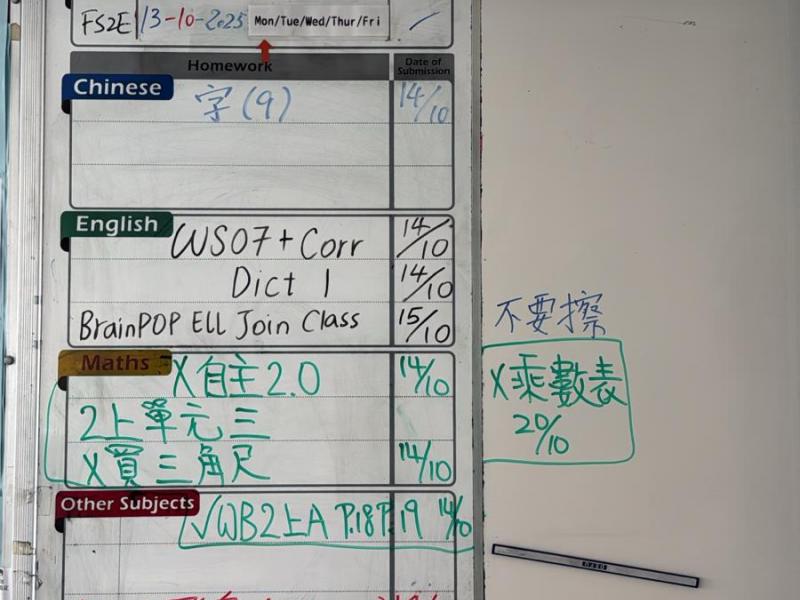 FS2E 13-10-2025 Mon/Tue/Wed/Thur/Fri
Homework Date of Submission
Chinese
字(9) 14/10
English
WS07+Corr 14/10
Dict 1 14/10
BrainPOP ELL Join Class 15/10
Maths
X自主2.0 14/10
2上單元三
X買三角尺 14/10
Other Subjects
√WB2上A P.18P.19 14/10
不要擦
X乘數表
20/10